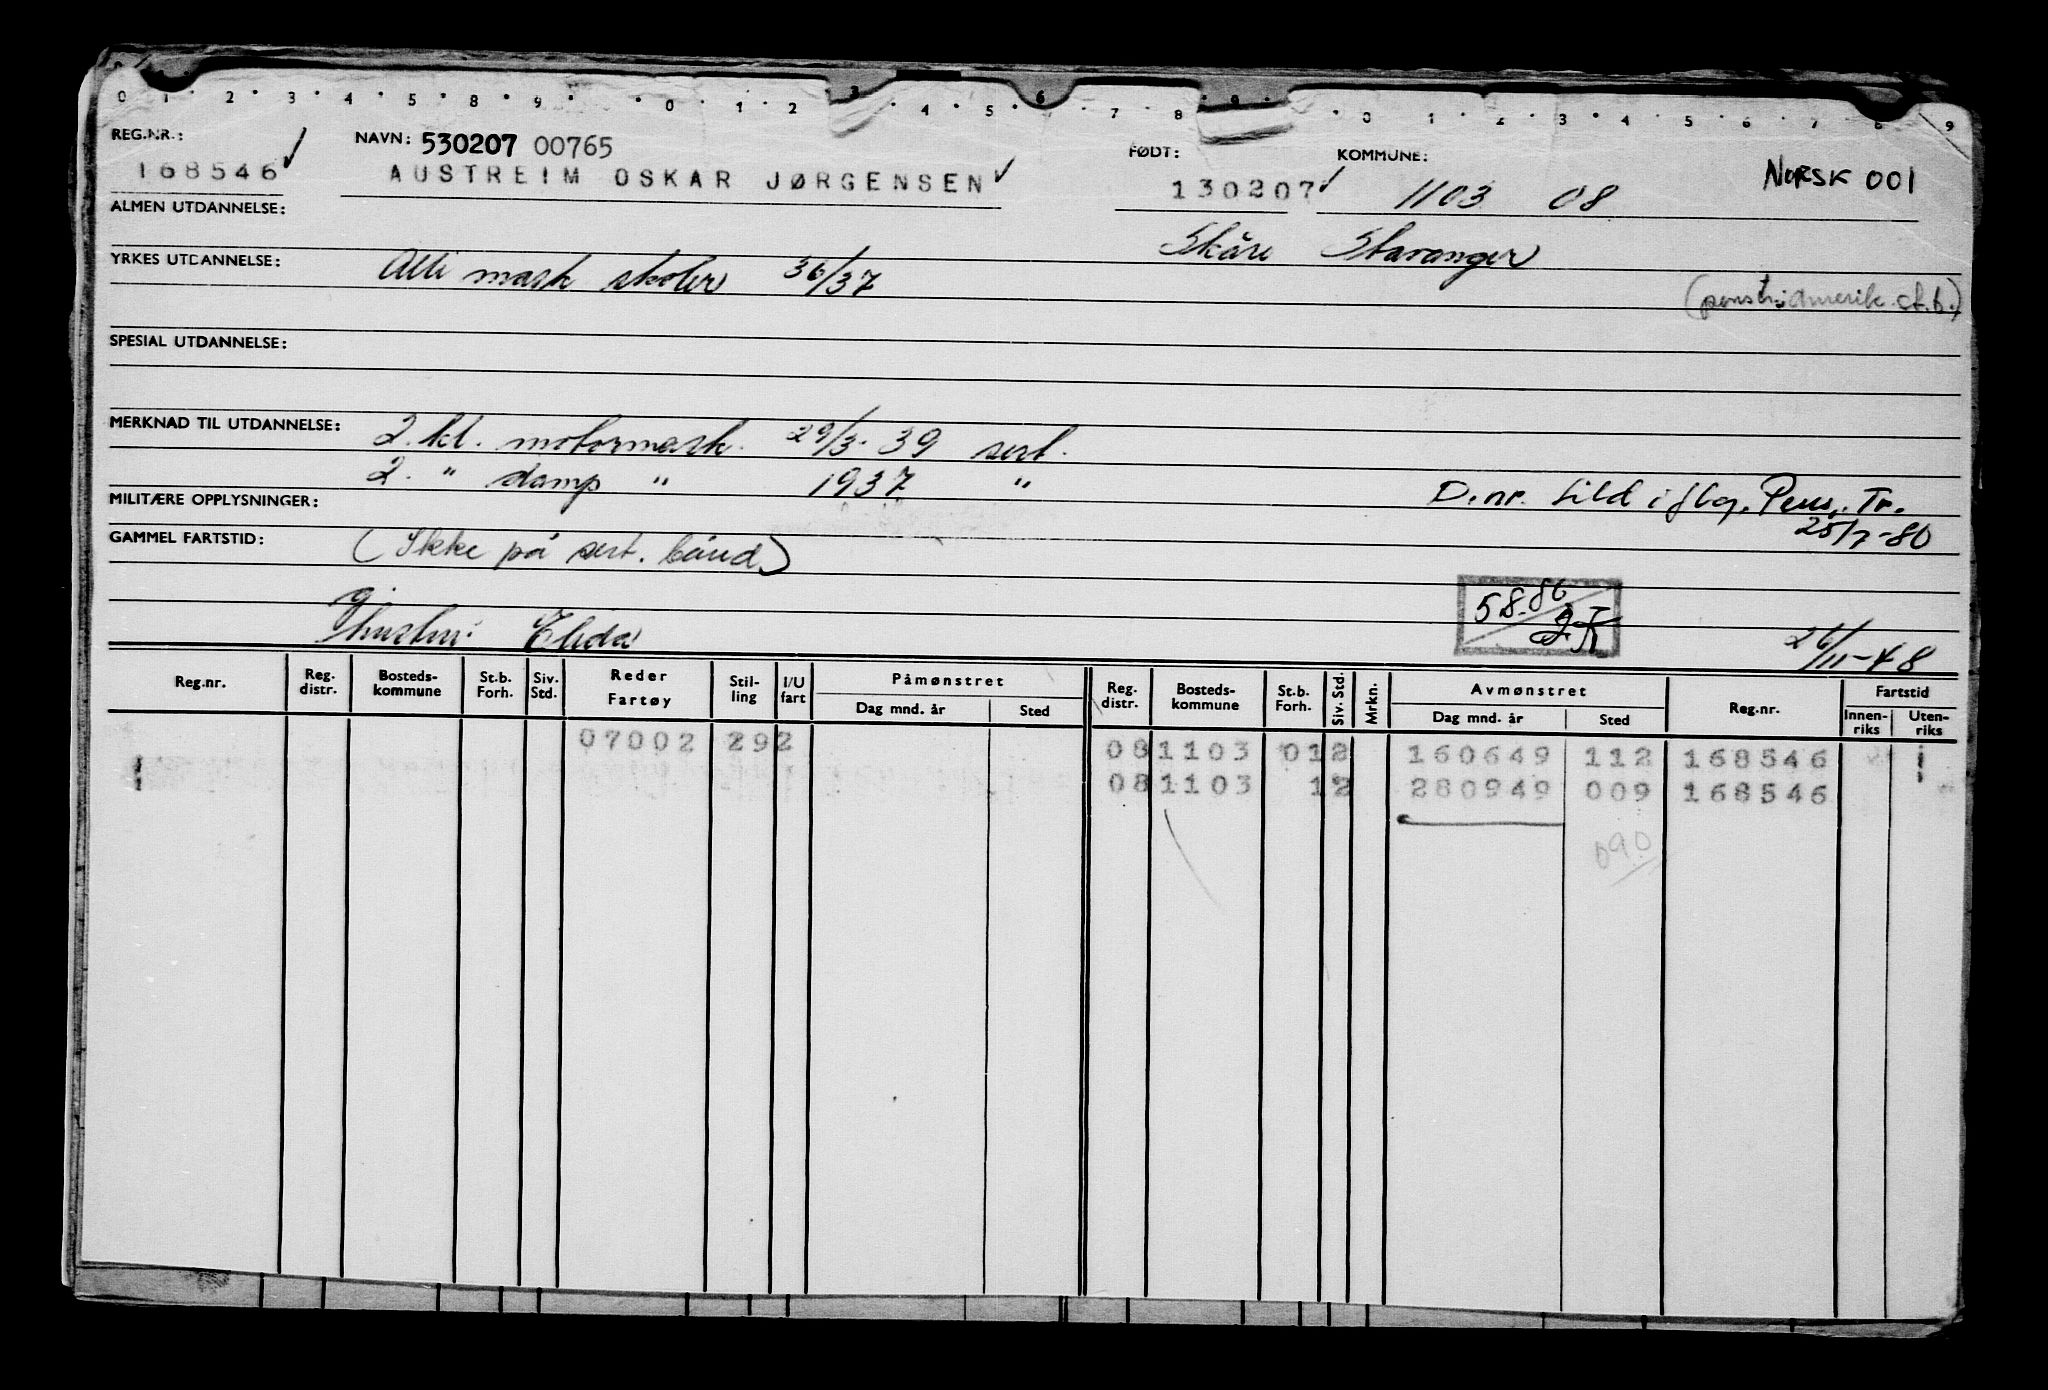 0 1 2 3 4 5 8 9 0 1 2 3 4 5 6 7 8 9 0 1 2 3 4 5 6 7 8 9
REG.NR.: NAVN: 530207 00765 FØDT: KOMMUNE:
168546 AUSTREIM OSKAR JØRGENSEN 130207 1103 08 NORSK 001
ALMEN UTDANNELSE:
Skåre Stavanger
YRKES UTDANNELSE: Alle mask skoler 36/37
SPESIAL UTDANNELSE:
MERKNAD TIL UTDANNELSE: 2. kl. motormask. 29/3-39 sert.
2. " damp " 1937 "
D.nr. tild i flg. Pens. Tr.
MILITÆRE OPPLYSNINGER:
25/7-80
GAMMEL FARTSTID: (Ikke på sert. bånd)
58-86
Hustru: Elida
26/11-48
Reg.nr. Reg. distr. Bosteds-kommune St.b. Forh. Siv. Std. Reder Fartøy Stil-ling I/U fart Påmønstret Dag mnd. år Sted Reg. distr. Bosteds-kommune St.b. Forh. Siv. Std. Mrkn. Avmønstret Dag mnd. år Sted Reg.nr. Fartstid Innen-riks Uten-riks
07002 292 081103 012 160649 112 168546
081103 12 280949 009 168546
090